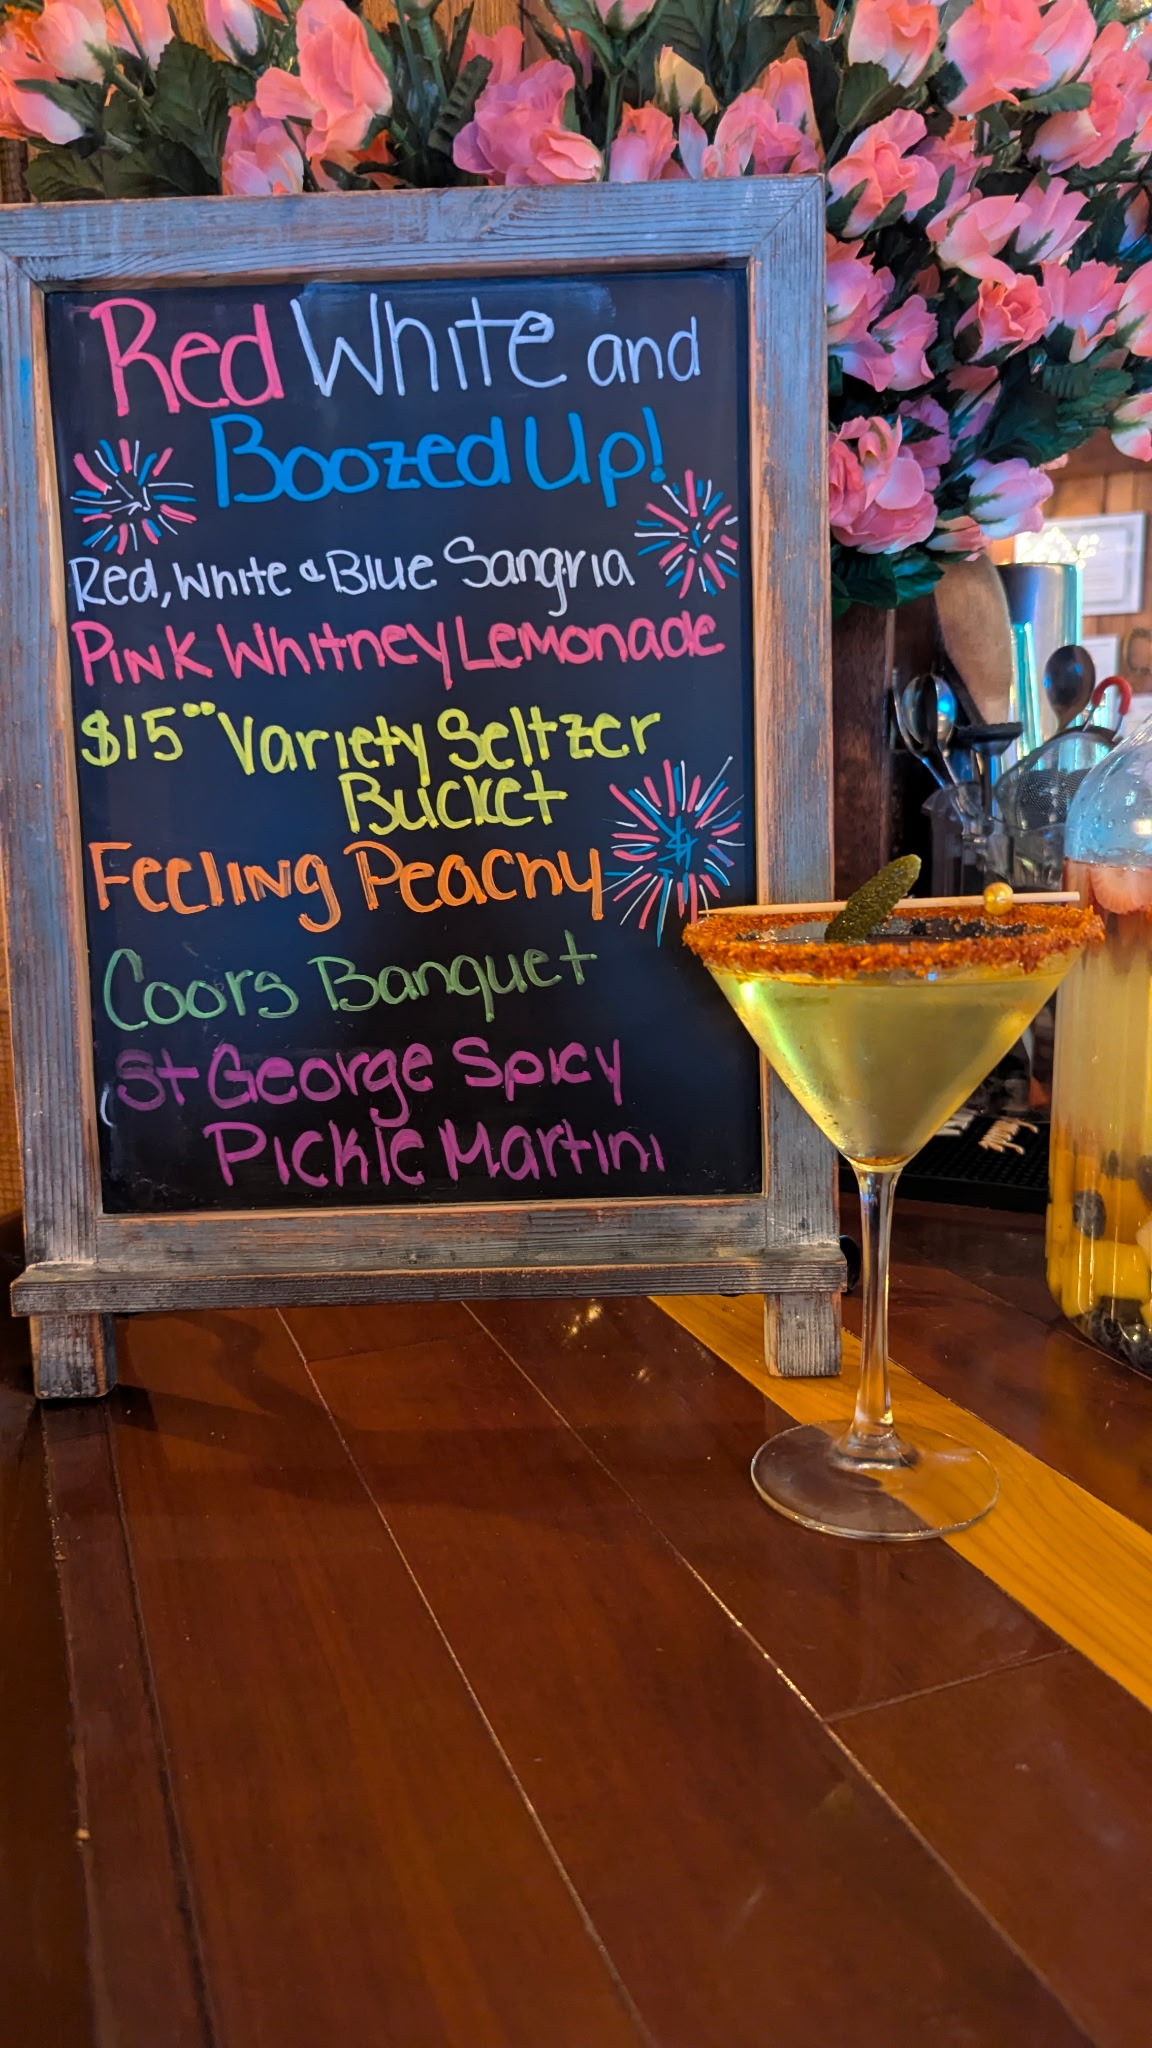 Red White and
Boozed Up!
Red, White & Blue Sangria
Pink Whitney Lemonade
$15⁰⁰ Variety Seltzer
Bucket
Feeling Peachy
Coors Banquet
St George Spicy
Pickle Martini